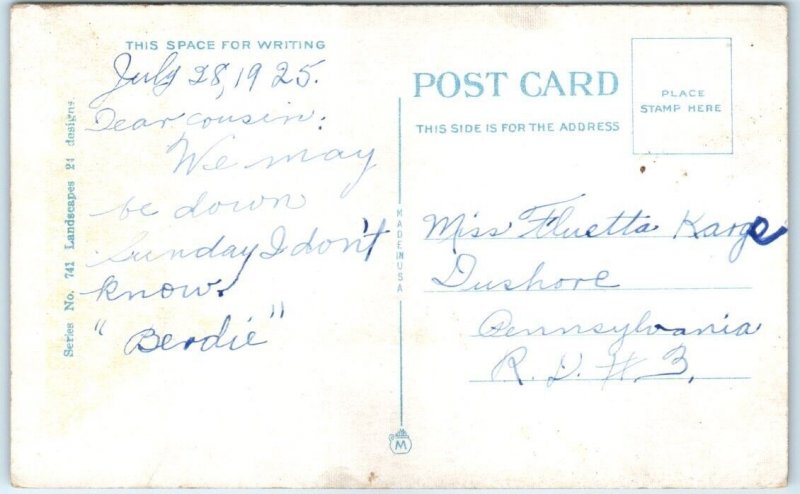 THIS SPACE FOR WRITING
July 28, 1925.
Dear cousin:
We may
be down
Sunday I don't
know.
"Berdie"
Series No. 741 Landscapes 24 designs.
MADE IN USA
M
POST CARD
THIS SIDE IS FOR THE ADDRESS
PLACE
STAMP HERE
Miss Fluetta Karge
Dushore
Pennsylvania
R. D. # 3.